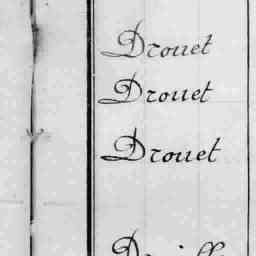 Drouet
Drouet
Drouet